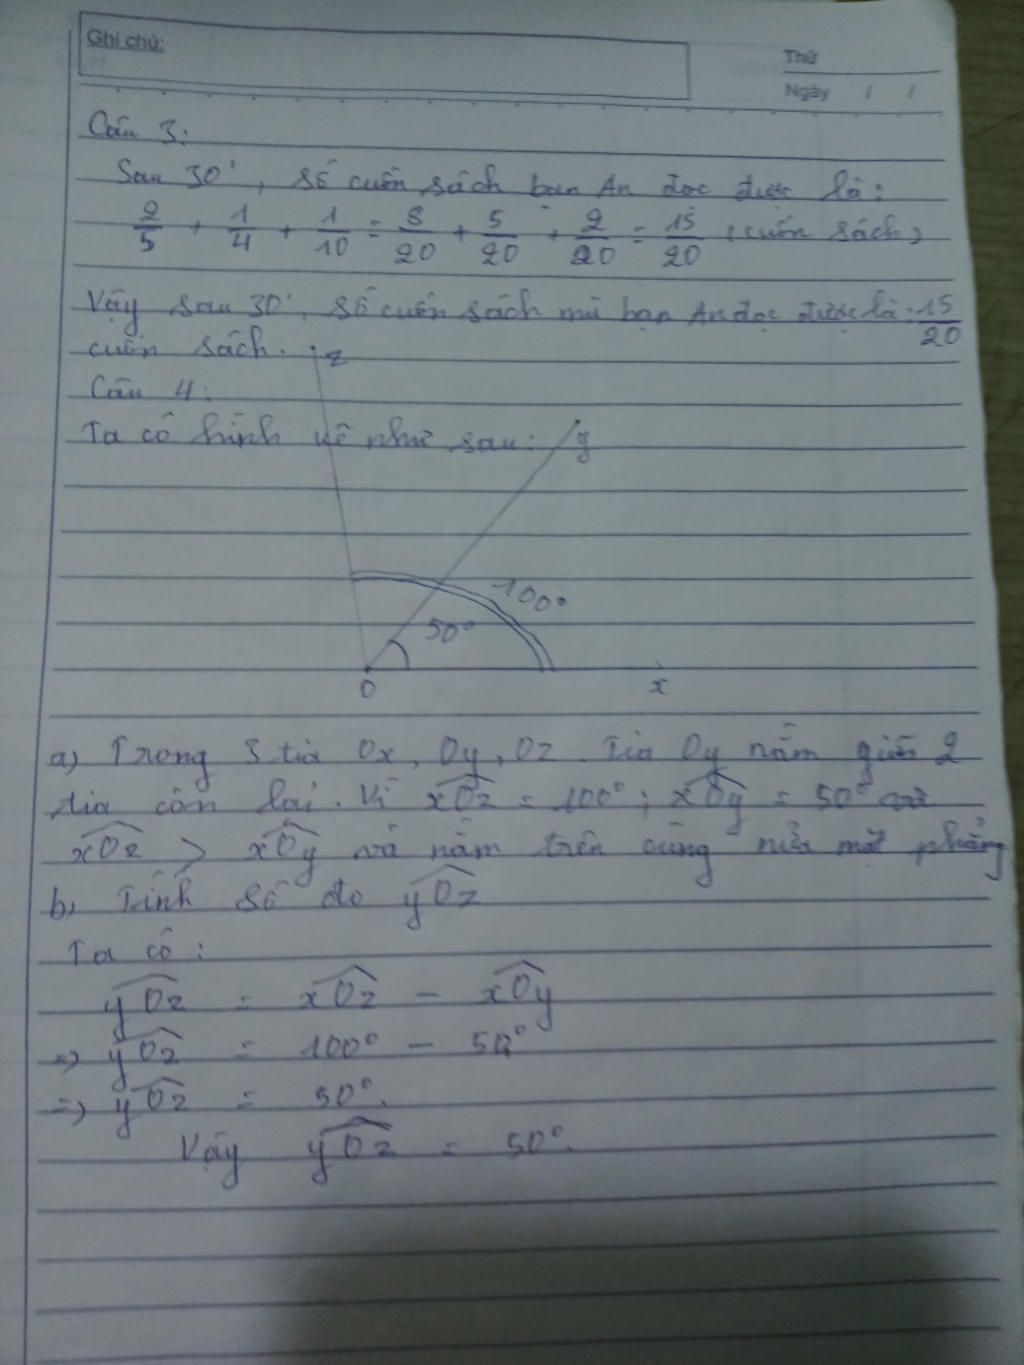 Ghi chú:
Thứ
Ngày / /
Câu 3:
Sau 30', số cuốn sách bạn An đọc được là:
2/5 + 1/4 + 1/10 = 8/20 + 5/20 + 2/20 = 15/20 (cuốn sách)
Vậy sau 30', số cuốn sách mà bạn An đọc được là: 15/20
cuốn sách.
z
Câu 4:
Ta có hình vẽ như sau:
y
100°
50°
O
x
a) Trong 3 tia Ox, Oy, Oz. Tia Oy nằm giữa 2
tia còn lại. Vì xOz = 100°; xOy = 50° và
xOz > xOy và nằm trên cùng nửa mặt phẳng
b, Tính số đo yOz
Ta có:
yOz = xOz - xOy
=> yOz = 100° - 50°
=> yOz = 50°.
Vậy yOz = 50°.